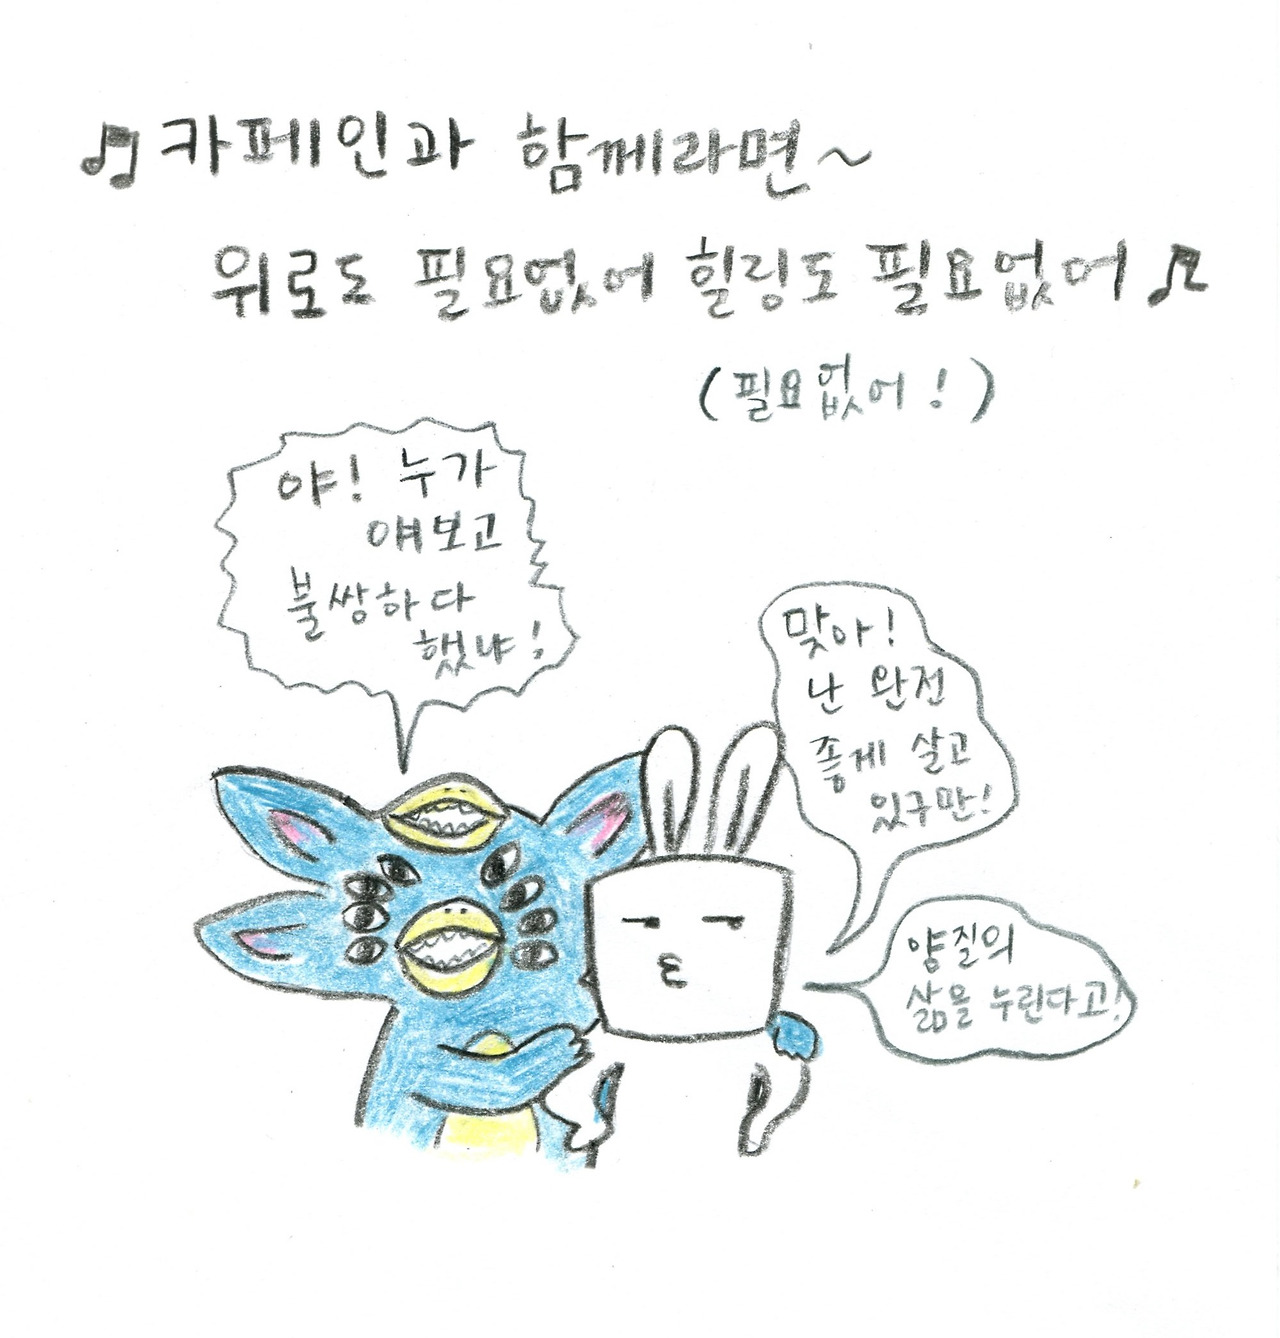 ♫ 카페인과 함께라면~
위로도 필요없어 힐링도 필요없어 ♫
(필요없어!)
야! 누가
얘보고
불쌍하다
했냐!
맞아!
난 완전
좋게 살고
있구만!
양질의
삶을 누린다고!